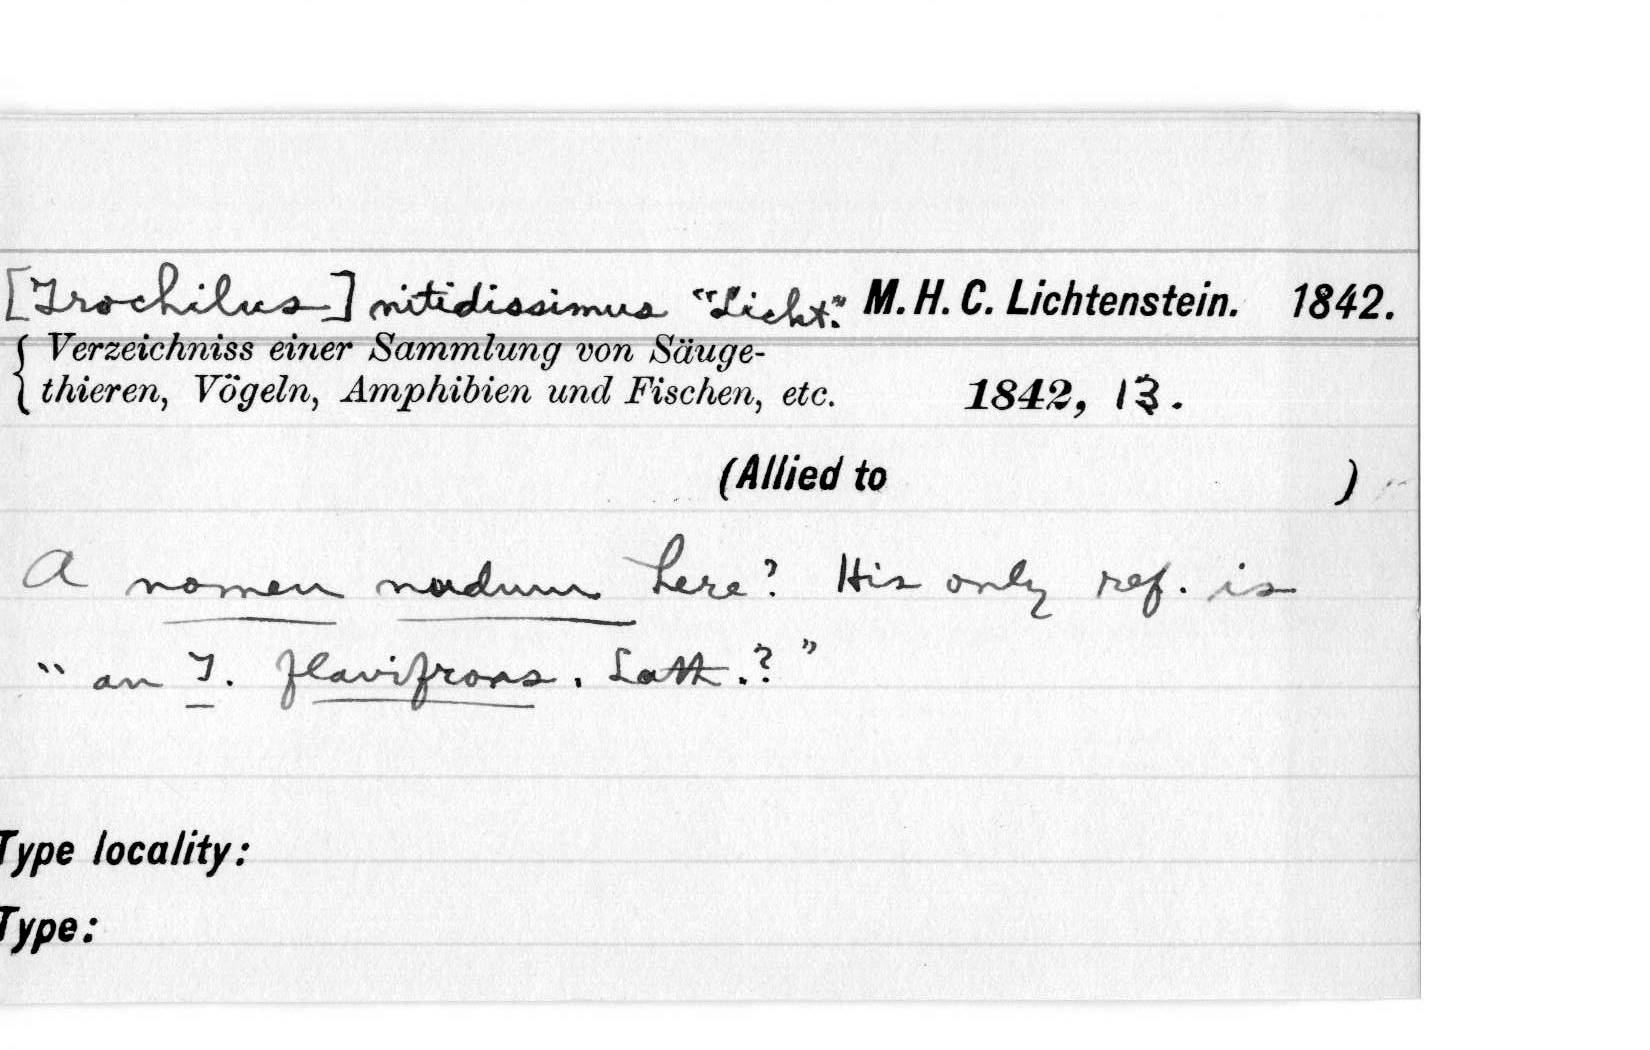 [Trochilus] nitidissimus "Licht." M. H. C. Lichtenstein. 1842.
Verzeichniss einer Sammlung von Säuge-
thieren, Vögeln, Amphibien und Fischen, etc. 1842, 13.
(Allied to )
A nomen nudum here? His only ref. is
"an T. flavifrons. Lath.?"
Type locality:
Type: